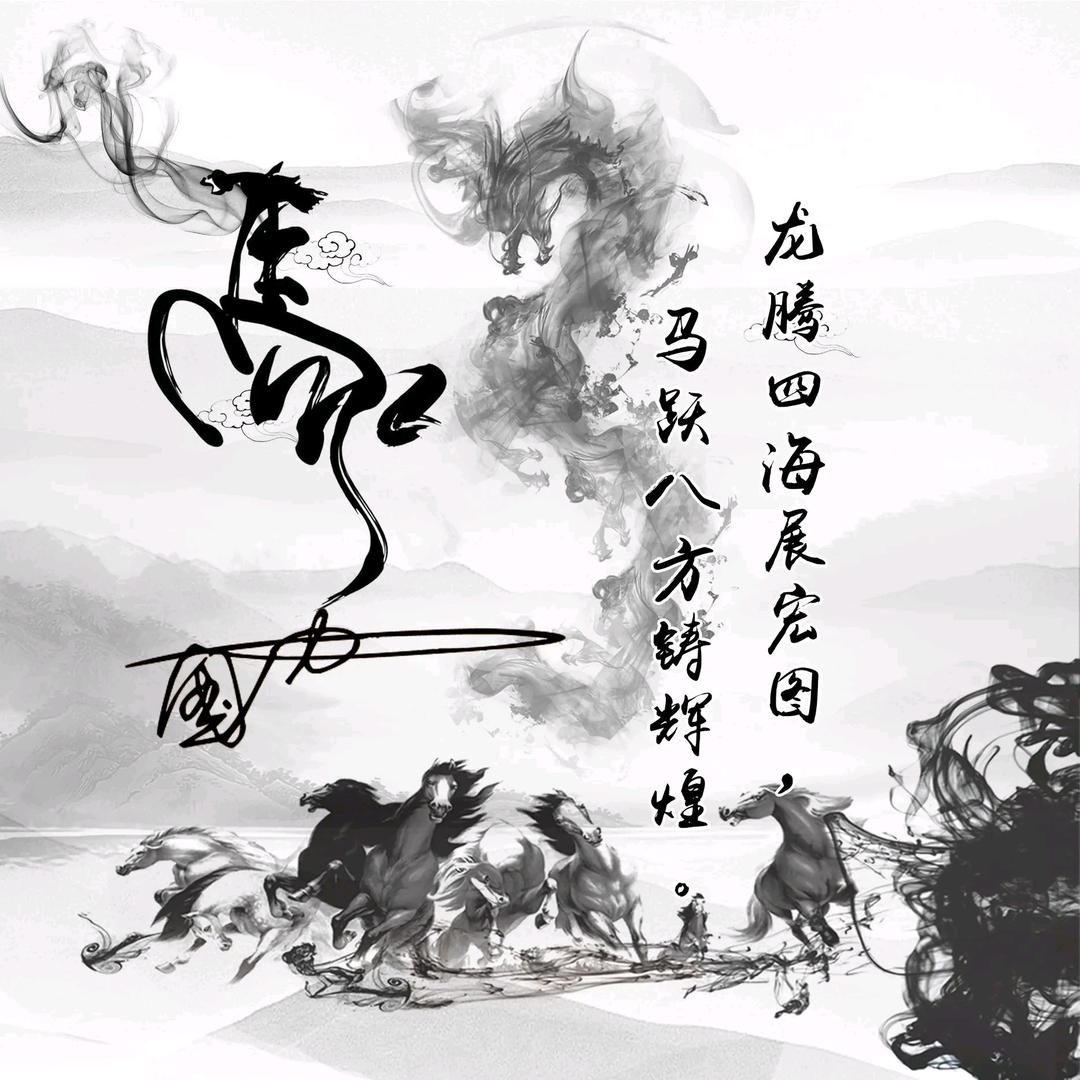 龙腾四海展宏图，
马跃八方铸辉煌。
馬
國力